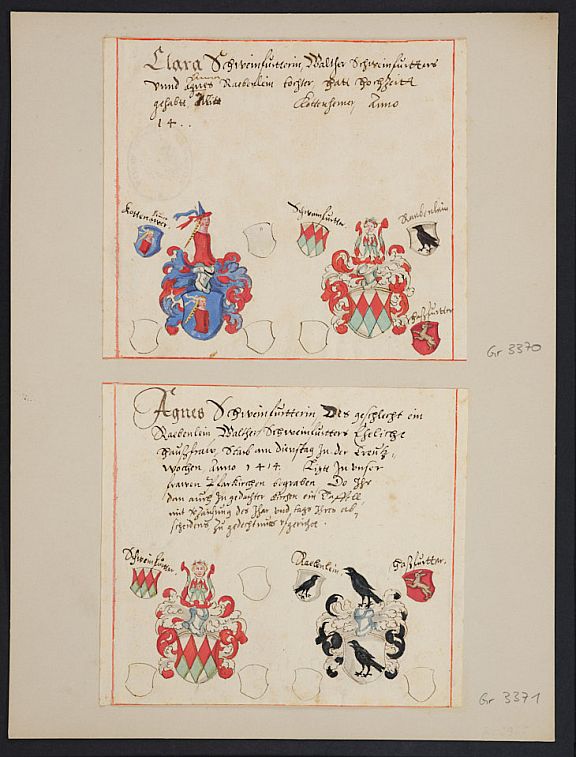 Clara Schweinfurtterin, Walther Schweinfurtters
vnnd Agnes Raebenlein tochter, hatt hochzeitt
gehabt Mitt Kottenhemer, Anno
14..
Schweinfurtter
Raabenlein
Haßfurtter
Gr 3370
Agnes Schweinfurtterin, Das geschlecht ein
Raebenlein, Walther Schweinfurtters Eheliche
haußfraw, Starb am dinstag In der Creutz,
wochen Anno 1414. ligtt In vnser
frawen Pfarkirchen begraben Do Ihr
dan auch In gedachter Kirchen ein Taffell
mit des Ihar vnd tags Ihres ab,
scheidens zu gedechtnus vfgericht.
Schweinfurtter.
Raebenlein
Haßfurtter.
Gr 3371